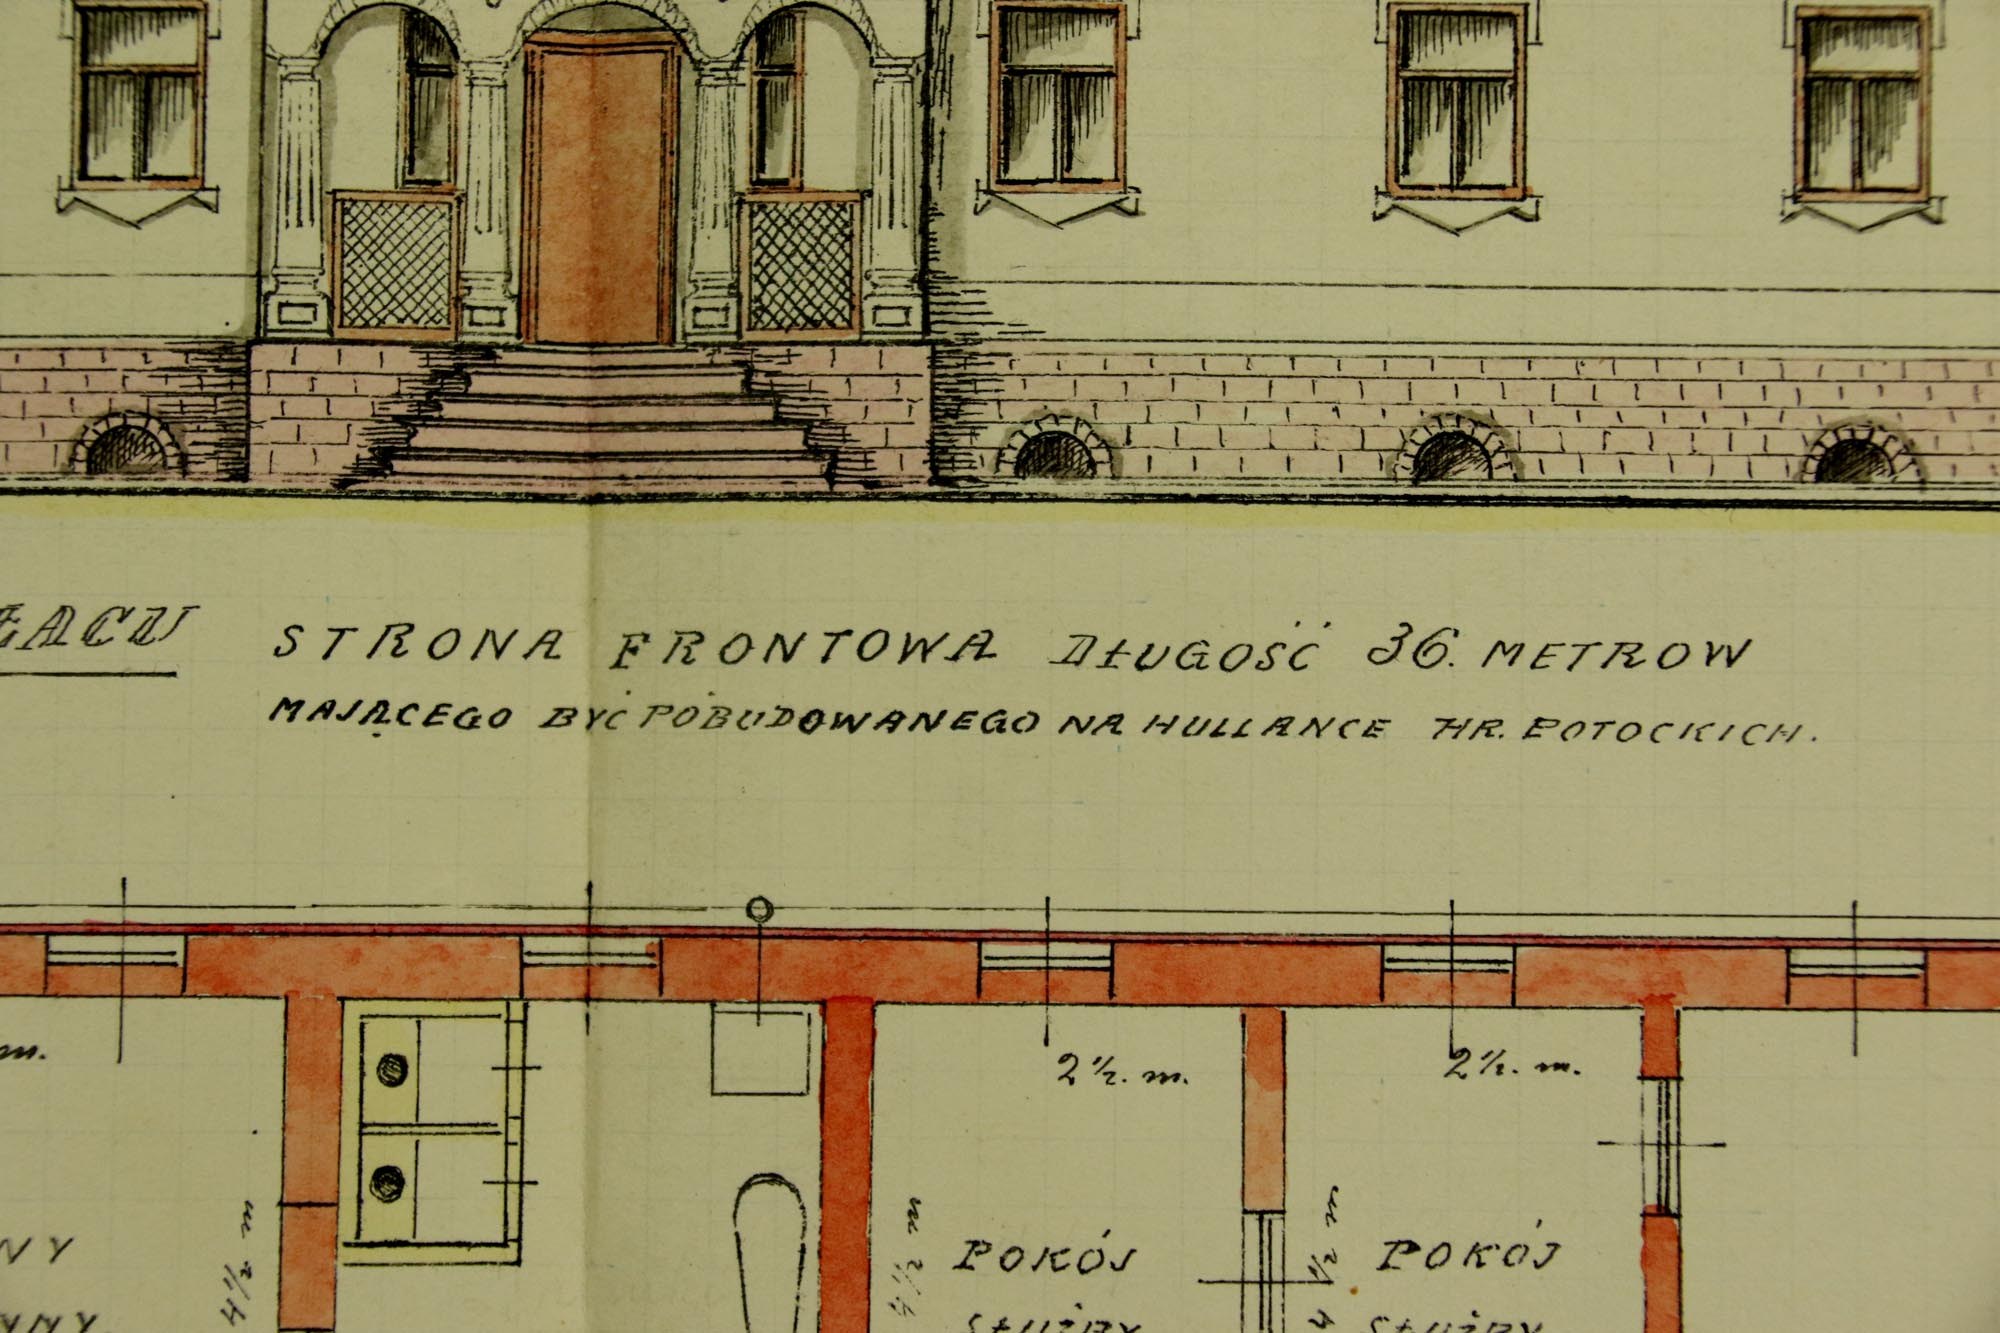 ŁACU STRONA FRONTOWA DŁUGOŚĆ 36. METROW
MAJĄCEGO BYĆ POBUDOWANEGO NA HULLANCE HR. POTOCKICH.
m.
2 1/2. m.
2 1/2. m.
m 2/1 4
m 2/1 4
m 2/1 4
NY
YNY
POKÓJ
SŁUŻBY
POKÓJ
SŁUŻBY